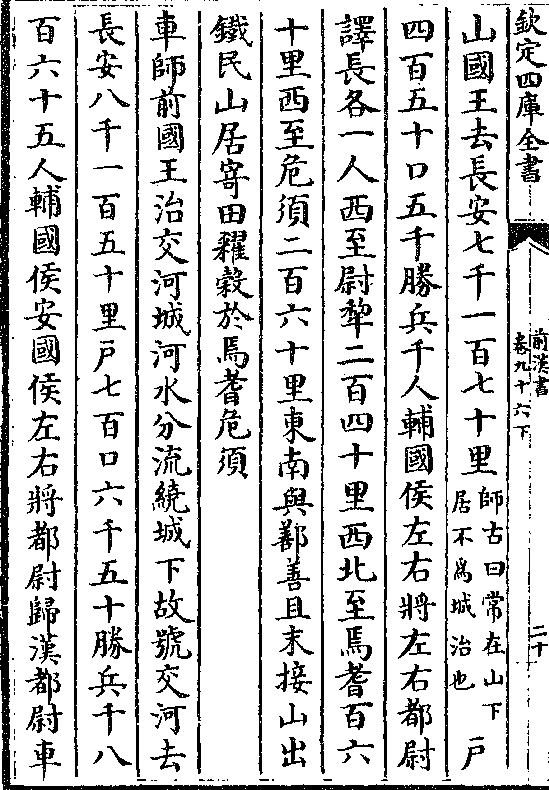 欽定四庫全書
前漢書
卷九十六下
二十
山國王去長安七千一百七十里師古曰常在山下居不為城治也戸
四百五十口五千勝兵千人輔國侯左右將左右都尉
譯長各一人西至尉犂二百四十里西北至焉耆百六
十里西至危須二百六十里東南與鄯善且末接山出
鐵民山居寄田糴榖於焉耆危須
車師前國王治交河城河水分流繞城下故號交河去
長安八千一百五十里戸七百口六千五十勝兵千八
百六十五人輔國侯安國侯左右將都尉歸漢都尉車